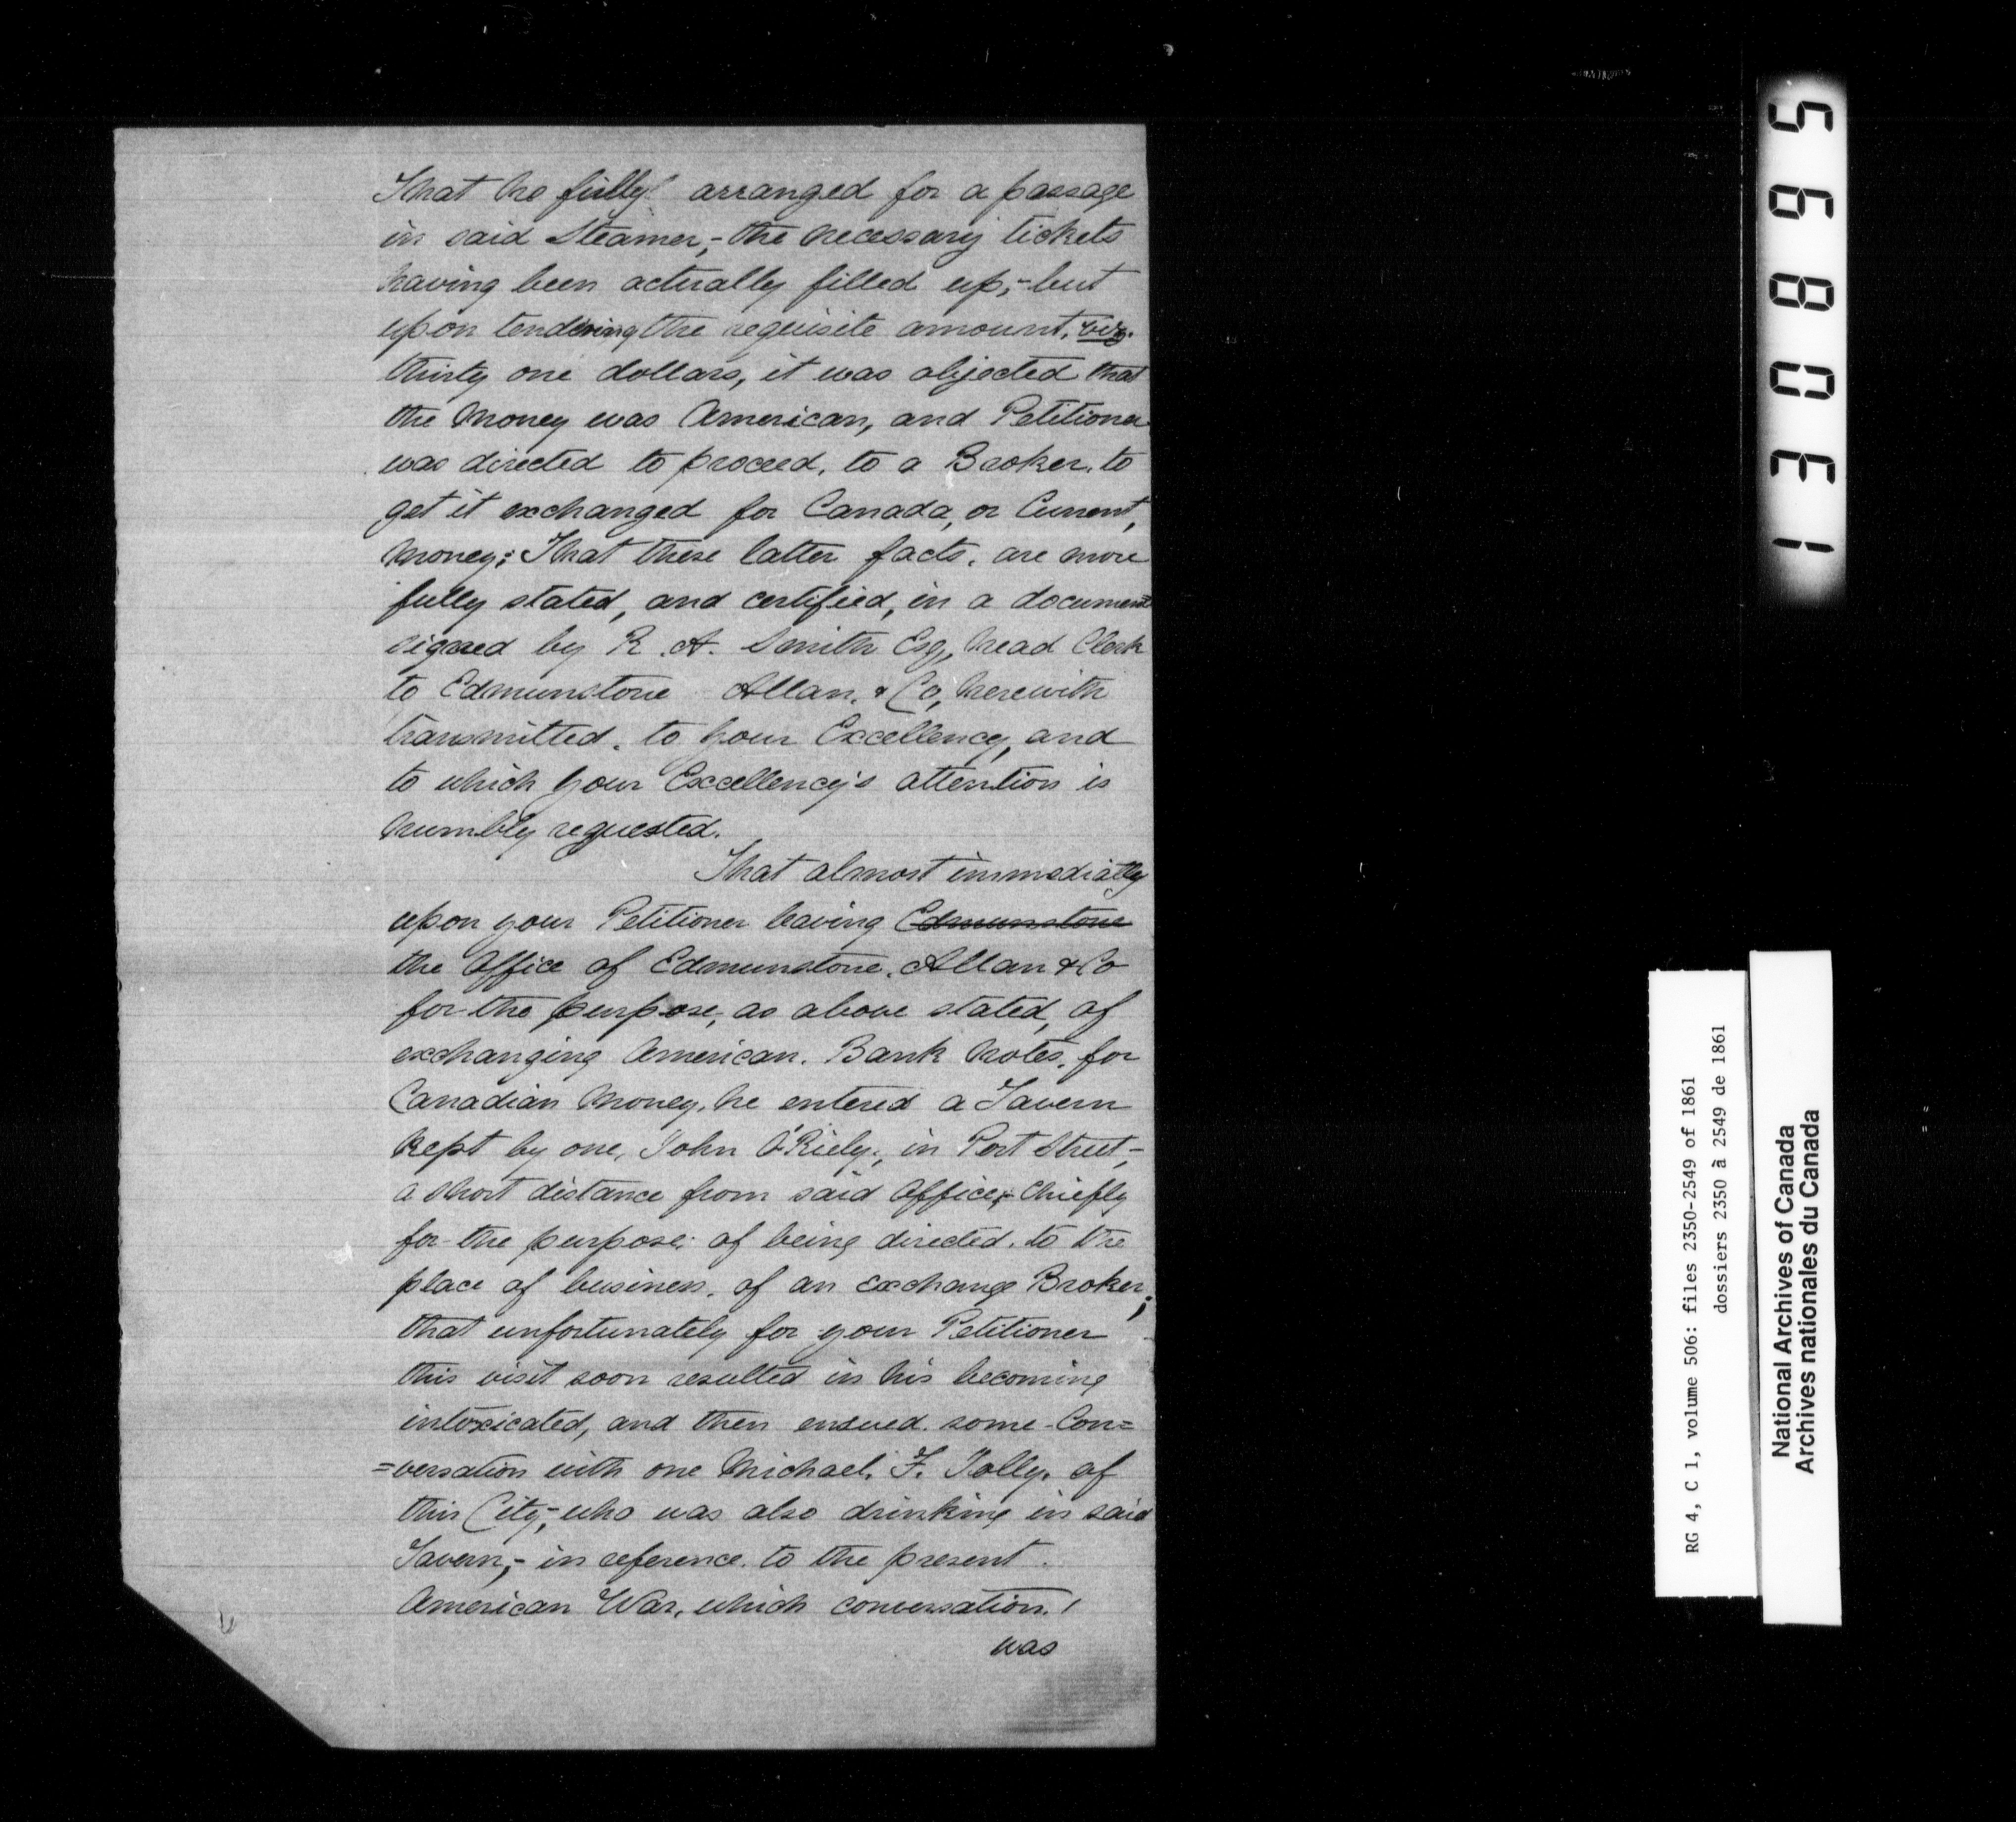 That he fully arranged for a passage
in said Steamer,- the necessary tickets
having been actually filled up,- but
upon tendering the requisite amount, viz.
thirty one dollars, it was objected that
the Money was American, and Petitioner
was directed to proceed, to a Broker, to
get it exchanged for Canada, or Current,
Money; That these latter facts, are more
fully stated, and certified, in a document
signed by R. A. Smith Esq, head Clerk
to Edmunstone Allan, & Co, herewith
transmitted, to your Excellency, and
to which your Excellency's attention is
humbly requested.
That almost immediatly
upon your Petitioner leaving Edmunstone
the Office of Edmunstone, Allan & Co
for the purpose, as above stated, of
exchanging American. Bank Notes, for
Canadian Money, he entered a Tavern
Kept by one, John O'Riely, in Port Street,-
a short distance from said Office,- Chiefly
for the purpose, of being directed, to the
place of business, of an Exchange Broker;
that unfortunately for your Petitioner
this visit soon resulted in his becoming
intoxicated, and then ensued some Con=
=versation with one Michael. F. Jolly, of
this City,- who was also drinking in said
Tavern,- in reference, to the present
American War, which conversation,
was
5
6
8
0
3
1
RG 4, C 1, volume 506: files 2350-2549 of 1861
dossiers 2350 à 2549 de 1861
National Archives of Canada
Archives nationales du Canada